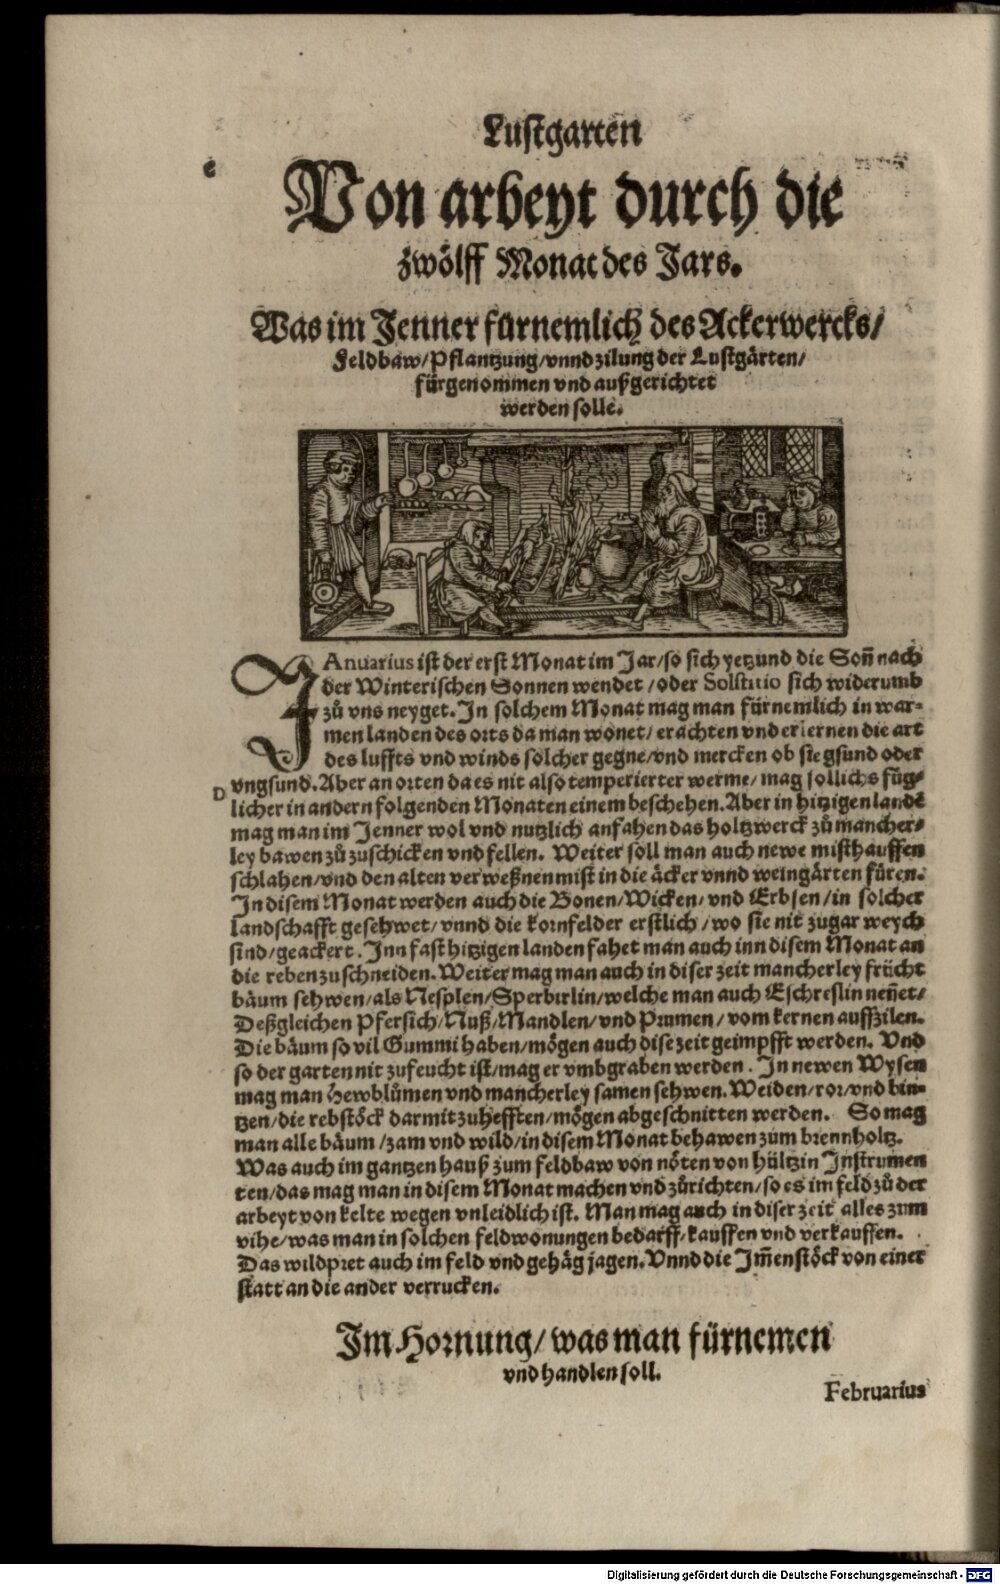 Lustgarten
Von arbeyt durch die
zwölff Monat des Jars.
Was im Jenner fürnemlich des Ackerwercks/
Feldbaw/Pflantzung/vnnd zilung der Lustgärten/
fürgenommen vnd außgerichtet
werden solle.
JAnuarius ist der erst Monat im Jar/so sich yetzund die Soñ nach
der Winterischen Sonnen wendet/oder Solstitio sich widerumb
zů vns neyget. In solchem Monat mag man fürnemlich in war-
men landen des orts da man wonet/erachten vnd erlernen die art
des luffts vnd winds solcher gegne/vnd mercken ob sie gsund oder
D vngsund. Aber an orten da es nit also temperierter werme/mag sollichs füg-
licher in andern folgenden Monaten einem beschehen. Aber in hitzigen landẽ
mag man im Jenner wol vnd nutzlich anfahen das holtzwerck zů mancher-
ley bawen zů zuschicken vnd fellen. Weiter soll man auch newe misthauffen
schlahen/vnd den alten verweßnen mist in die äcker vnnd weingärten füren.
In disem Monat werden auch die Bonen/Wicken/vnd Erbsen/in solcher
landschafft gesehwet/vnnd die kornfelder erstlich/wo sie nit zu gar weych
sind/geackert. Inn fast hitzigen landen fahet man auch inn disem Monat an
die reben zu schneiden. Weiter mag man auch in diser zeit mancherley frücht
bäum sehwen/als Nesplen/Sperbirlin/welche man auch Eschreslin neñet/
Deßgleichen Pfersich/Nuß/Mandlen/vnd Prumen/vom kernen auffzilen.
Die bäum so vil Gummi haben/mögen auch dise zeit geimpfft werden. Vnd
so der garten nit zu feucht ist/mag er vmbgraben werden. In newen Wysen
mag man Hewblůmen vnd mancherley samen sehwen. Weiden/ror/vnd bin-
tzen/die rebstöck darmit zu hefften/mögen abgeschnitten werden. So mag
man alle bäum/zam vnd wild/in disem Monat behawen zum brennholtz.
Was auch im gantzen hauß zum feldbaw von nöten von hültzin Instrumen
ten/das mag man in disem Monat machen vnd zůrichten/so es im feld zů der
arbeyt von kelte wegen vnleidlich ist. Man mag auch in diser zeit alles zum
vihe/was man in solchen feldwonungen bedarff/kauffen vnd verkauffen.
Das wildpret auch im feld vnd gehäg jagen. Vnnd die Im̃enstöck von einer
statt an die ander verrucken.
Im Hornung/was man fürnemen
vnd handlen soll.
Februarius
Digitalisierung gefördert durch die Deutsche Forschungsgemeinschaft - DFG